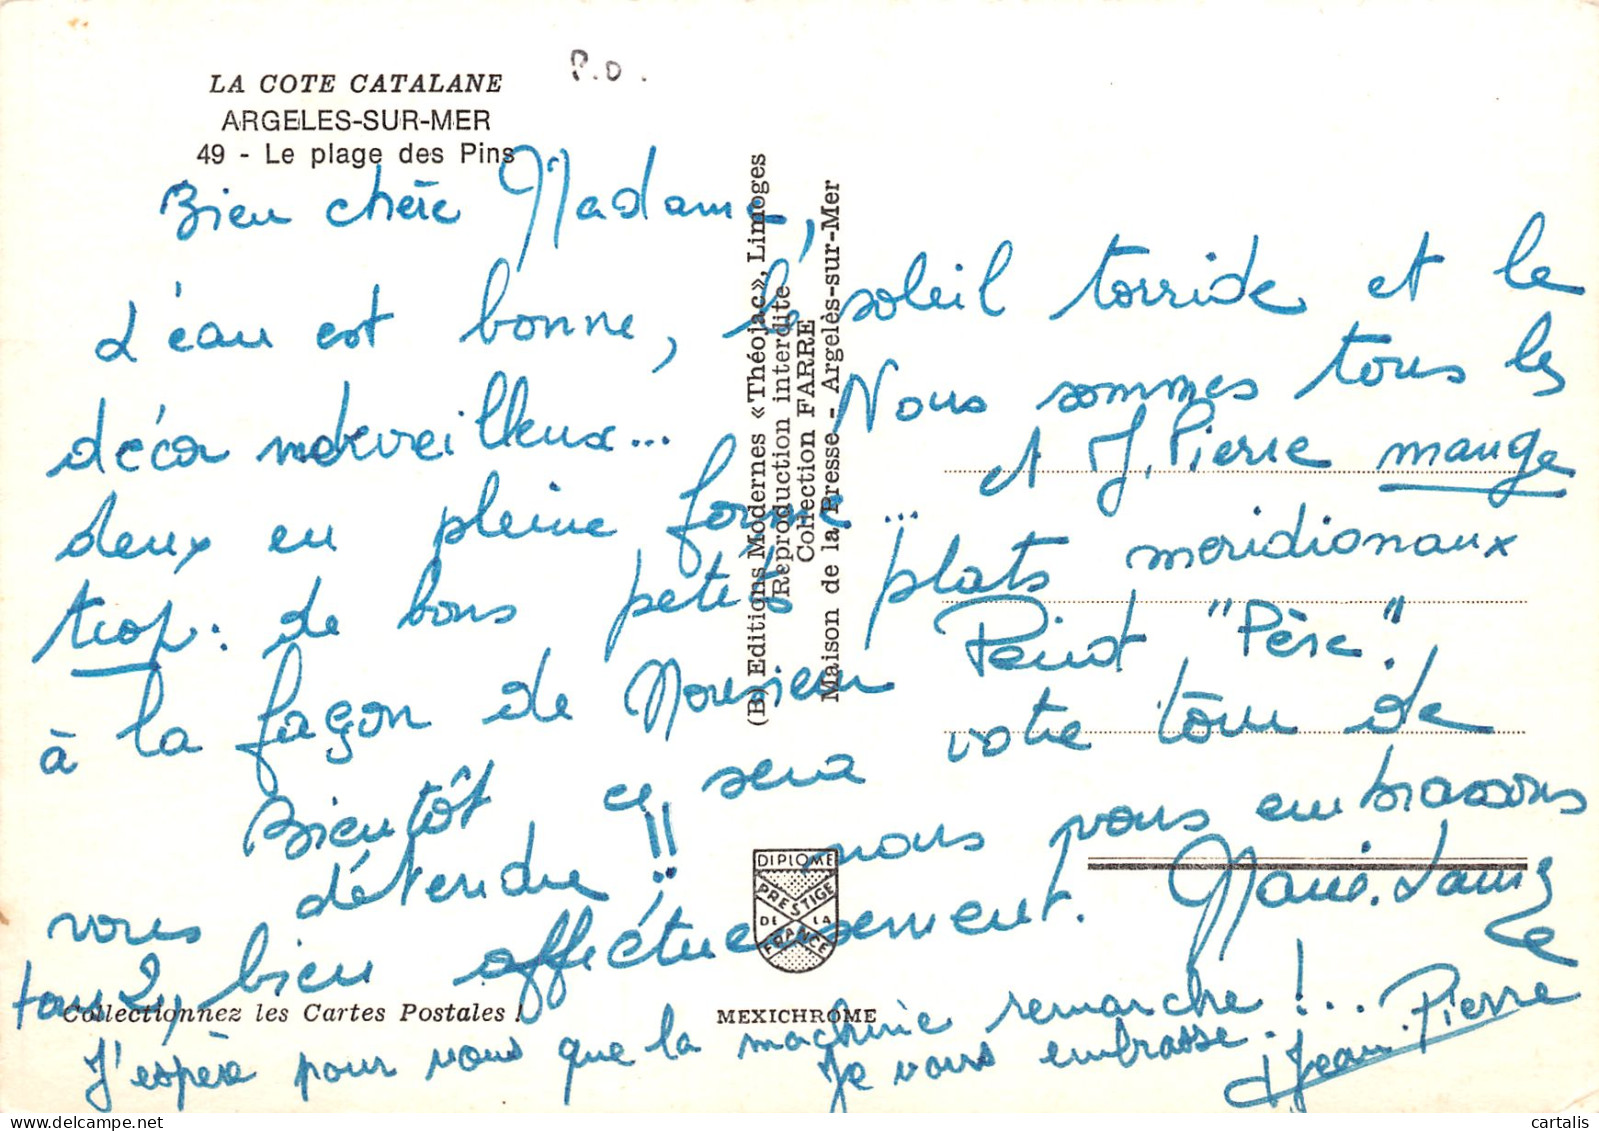 LA COTE CATALANE
ARGELES-SUR-MER
49 - Le plage des Pins
P.D.
Bien chère Madame,
L'eau est bonne, le soleil torride et le
décor merveilleux... Nous sommes tous les
deux en pleine forme... et J. Pierre mange
trop : de bons petits plats meridionaux
à la façon de Monsieur Peinot "Père".
Bientôt ce sera votre tour de
vous détendre !! nous vous embrassons
tous 2, bien affectueusement. Marie-Laurence
J'espère pour vous que la machine remarche !...
Je vous embrasse. Jean-Pierre
(B) Editions Modernes «Théojac», Limoges
Reproduction interdite
Collection FARRE
Maison de la Presse - Argelès-sur-Mer
DIPLOME
PRESTIGE
DE LA
FRANCE
Collectionnez les Cartes Postales !
MEXICHROME
cartalis